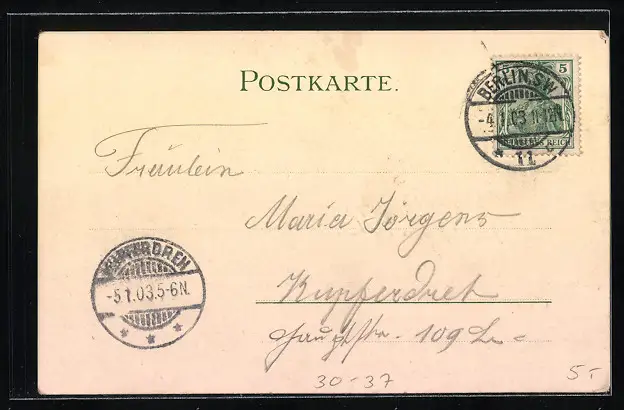 POSTKARTE.
5
DEUTSCHES REICH
BERLIN.SW.
-4.1.03.11-12V.
* 11 c
Fräulein
Maria Jörgens
KUPFERDREH
-5.1.03.5-6N.
* * *
Kupferdreh
Hauptstr. 109
30-37
5.-